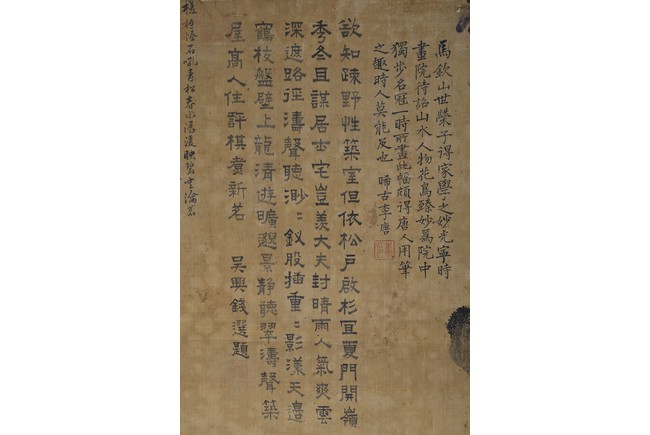 馬欽山世榮子得家學之妙光寧時
畫院待詔山水人物花鳥臻妙爲院中
獨步名冠一時所畫此幅頗得唐人用筆
之趣時人莫能及也 晞古李唐
欲知疎野性築室但依松戶啟杉冝夏門開嶺
秀冬且謀居士宅豈羨大夫封晴雨人氣爽雲
深遮路徑濤聲聽渺〻釵股插重〻影漾天邊
鶴枝盤壁上龍清遊曠邈景靜聽翠濤聲築
屋高人住評棋煮新茗 吳興錢選題
石吼青松春水湲映碧